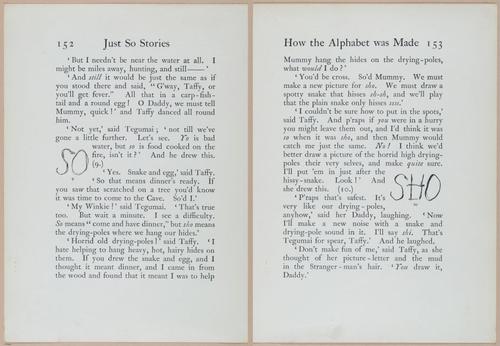 152 Just So Stories
'But I needn't be near the water at all. I
might be miles away, hunting, and still——'
'And still it would be just the same as if
you stood there and said, "G'way, Taffy, or
you'll get fever." All that in a carp-fish-
tail and a round egg! O Daddy, we must tell
Mummy, quick!' and Taffy danced all round
him.
'Not yet,' said Tegumai; 'not till we've
gone a little further. Let's see. Yo is bad
water, but so is food cooked on the
fire, isn't it?' And he drew this.
(9.)
SO
9
'Yes. Snake and egg,' said Taffy.
'So that means dinner's ready. If
you saw that scratched on a tree you'd know
it was time to come to the Cave. So'd I.'
'My Winkie!' said Tegumai. 'That's true
too. But wait a minute. I see a difficulty.
So means "come and have dinner," but sho means
the drying-poles where we hang our hides.'
'Horrid old drying-poles!' said Taffy. 'I
hate helping to hang heavy, hot, hairy hides on
them. If you drew the snake and egg, and I
thought it meant dinner, and I came in from
the wood and found that it meant I was to help
How the Alphabet was Made 153
Mummy hang the hides on the drying-poles,
what would I do?'
'You'd be cross. So'd Mummy. We must
make a new picture for sho. We must draw a
spotty snake that hisses sh-sh, and we'll play
that the plain snake only hisses ssss.'
'I couldn't be sure how to put in the spots,'
said Taffy. 'And p'raps if you were in a hurry
you might leave them out, and I'd think it was
so when it was sho, and then Mummy would
catch me just the same. No! I think we'd
better draw a picture of the horrid high drying-
poles their very selves, and make quite sure.
I'll put 'em in just after the
hissy-snake. Look!' And
she drew this. (10.)
SHO
10
'P'raps that's safest. It's
very like our drying-poles,
anyhow,' said her Daddy, laughing. 'Now
I'll make a new noise with a snake and
drying-pole sound in it. I'll say shi. That's
Tegumai for spear, Taffy.' And he laughed.
'Don't make fun of me,' said Taffy, as she
thought of her picture-letter and the mud
in the Stranger-man's hair. 'You draw it,
Daddy.'